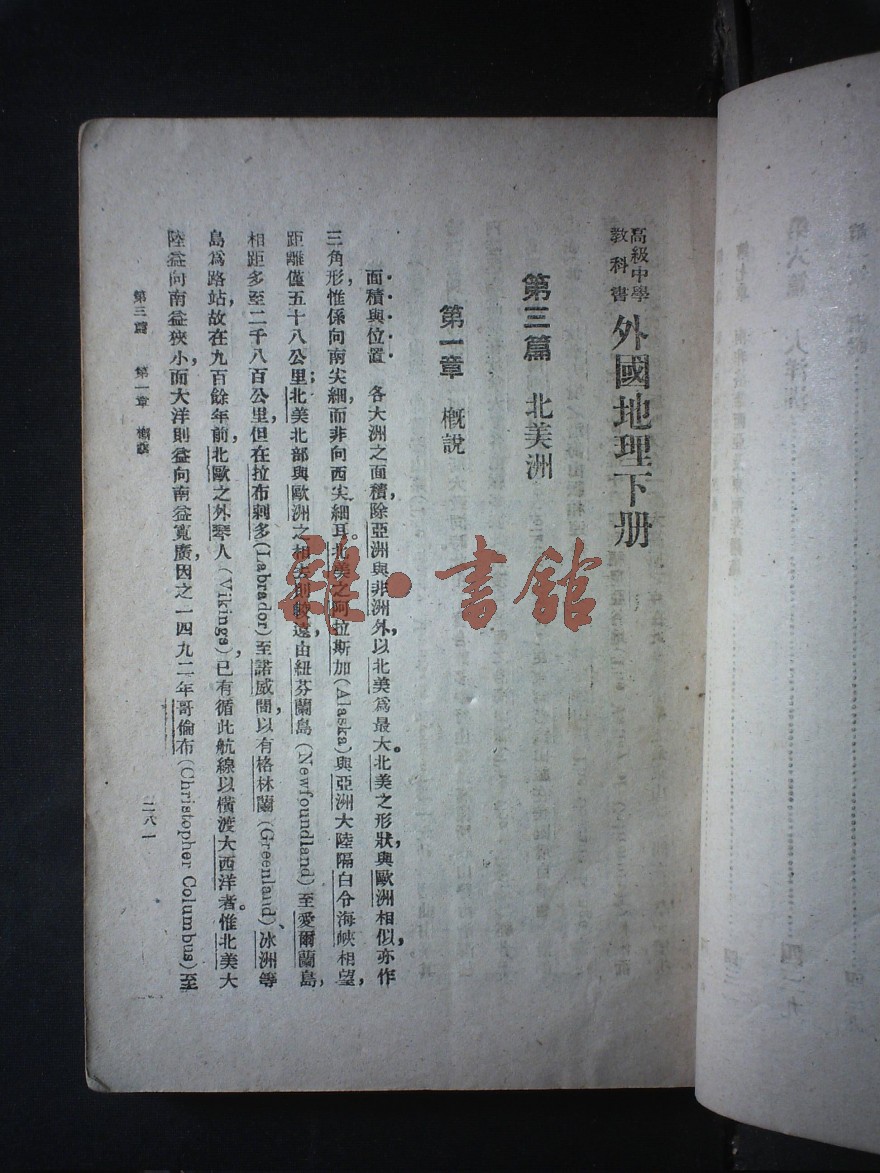 高級中學
教科書
外國地理下册
第三篇 北美洲
第一章 概說
面積與位置 各大洲之面積，除亞洲與非洲外，以北美爲最大。北美之形狀，與歐洲相似，亦作
三角形，惟係向南尖細，而非向西尖細耳。北美之阿拉斯加(Alaska)與亞洲大陸隔白令海峽相望，
距離僅五十八公里；北美北部與歐洲之相去則較遠，由紐芬蘭島(Newfoundland)至愛爾蘭島，
相距多至二千八百公里，但在拉布剌多(Labrador)至諾威間以有格林蘭(Greenland)、冰洲等
島爲路站，故在九百餘年前，北歐之外琴人(Vikings)，已有循此航線以橫渡大西洋者。惟北美大
陸益向南益狹小，而大洋則益向南益寬廣，因之一四九二年哥倫布(Christopher Columbus)至
第三篇 第一章 概說
二八一
雜·書館
第六篇 大洋洲
四一九